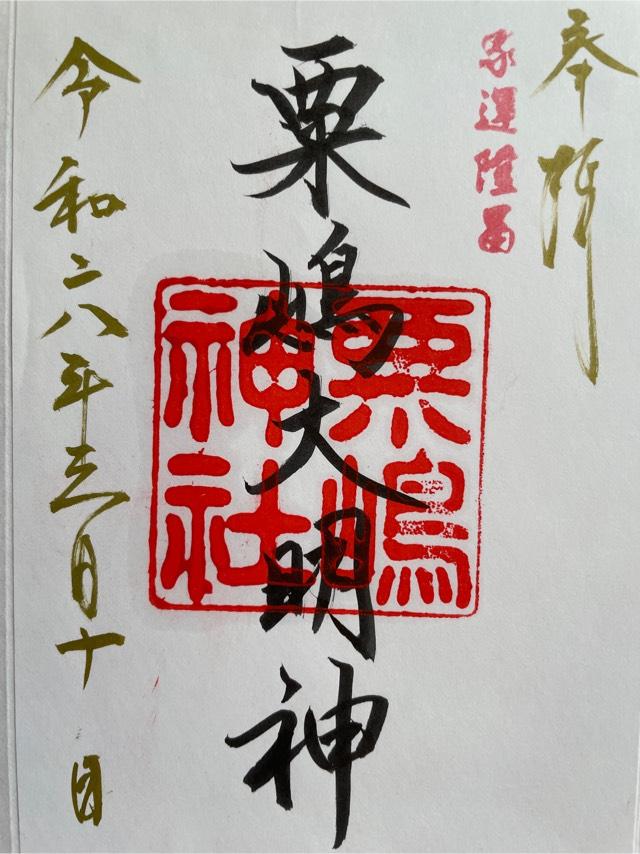 奉拝
家運隆昌
粟嶋大明神
粟嶋
神社
令和六年三月十日